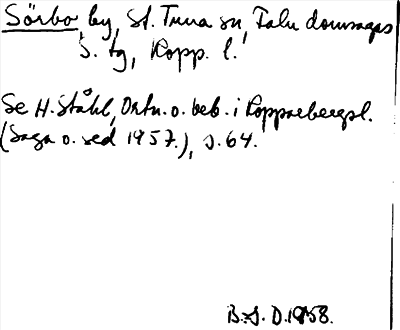 Sörbo, by, St. Tuna sn, Falu domsagas
s. tg, Kopp. l.
Se H. Ståhl, Ortn. o. beb. i Kopparbergsl.
(Saga o. sed 1957.), s. 64.
B. S. D. 1958.